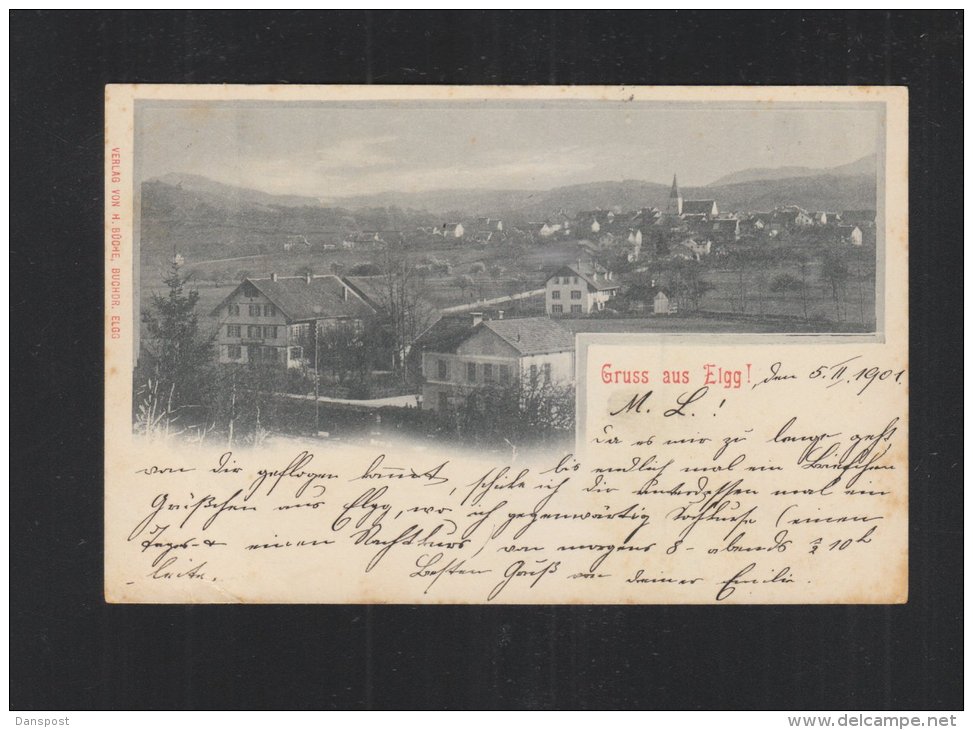 VERLAG VON H. BÜCHE, BUCHDR. ELGG
Gruss aus Elgg! , den 5. II. 1901.
M. L.!
Da es mir zu lange geht,
bis endlich mal ein Brieflein
von dir geflogen kommt, schicke ich dir unterdessen mal ein
Grüßchen aus Elgg, wo ich gegenwärtig Kochkurse (einen
Tages- & einen Nachtkurs, von morgens 8 - abends ½ 10h
leite.
Besten Gruß von deiner Emilie.
Danspost
www.delcampe.net